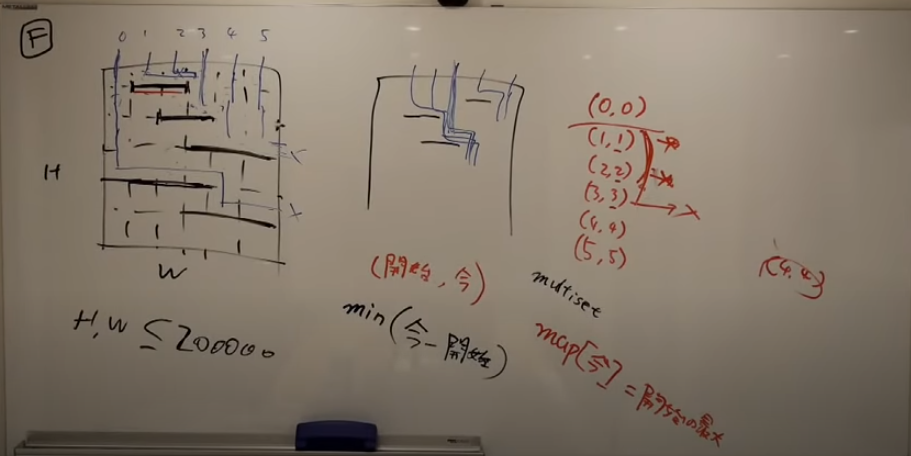 F
0 1 2 3 4 5
H
W
H, W ≦ 200000
(開始, 今)
min(今-開始)
(0,0)
(1,1)
(2,2)
(3,3)
(4,4)
(5,5)
multiset
map[今] = 開始の最大
(4,4)